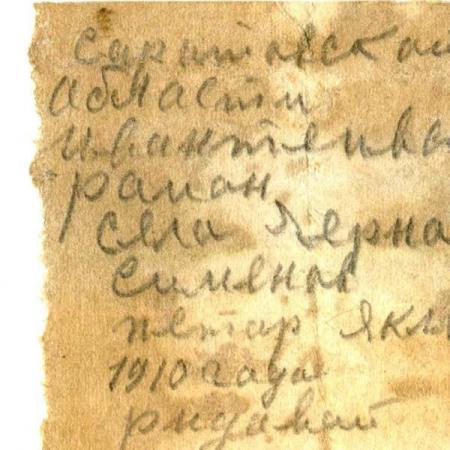 саритовской
абласти
ивантеивс
район
села Черна
сименов
петар Якл
1910 года
ридавой